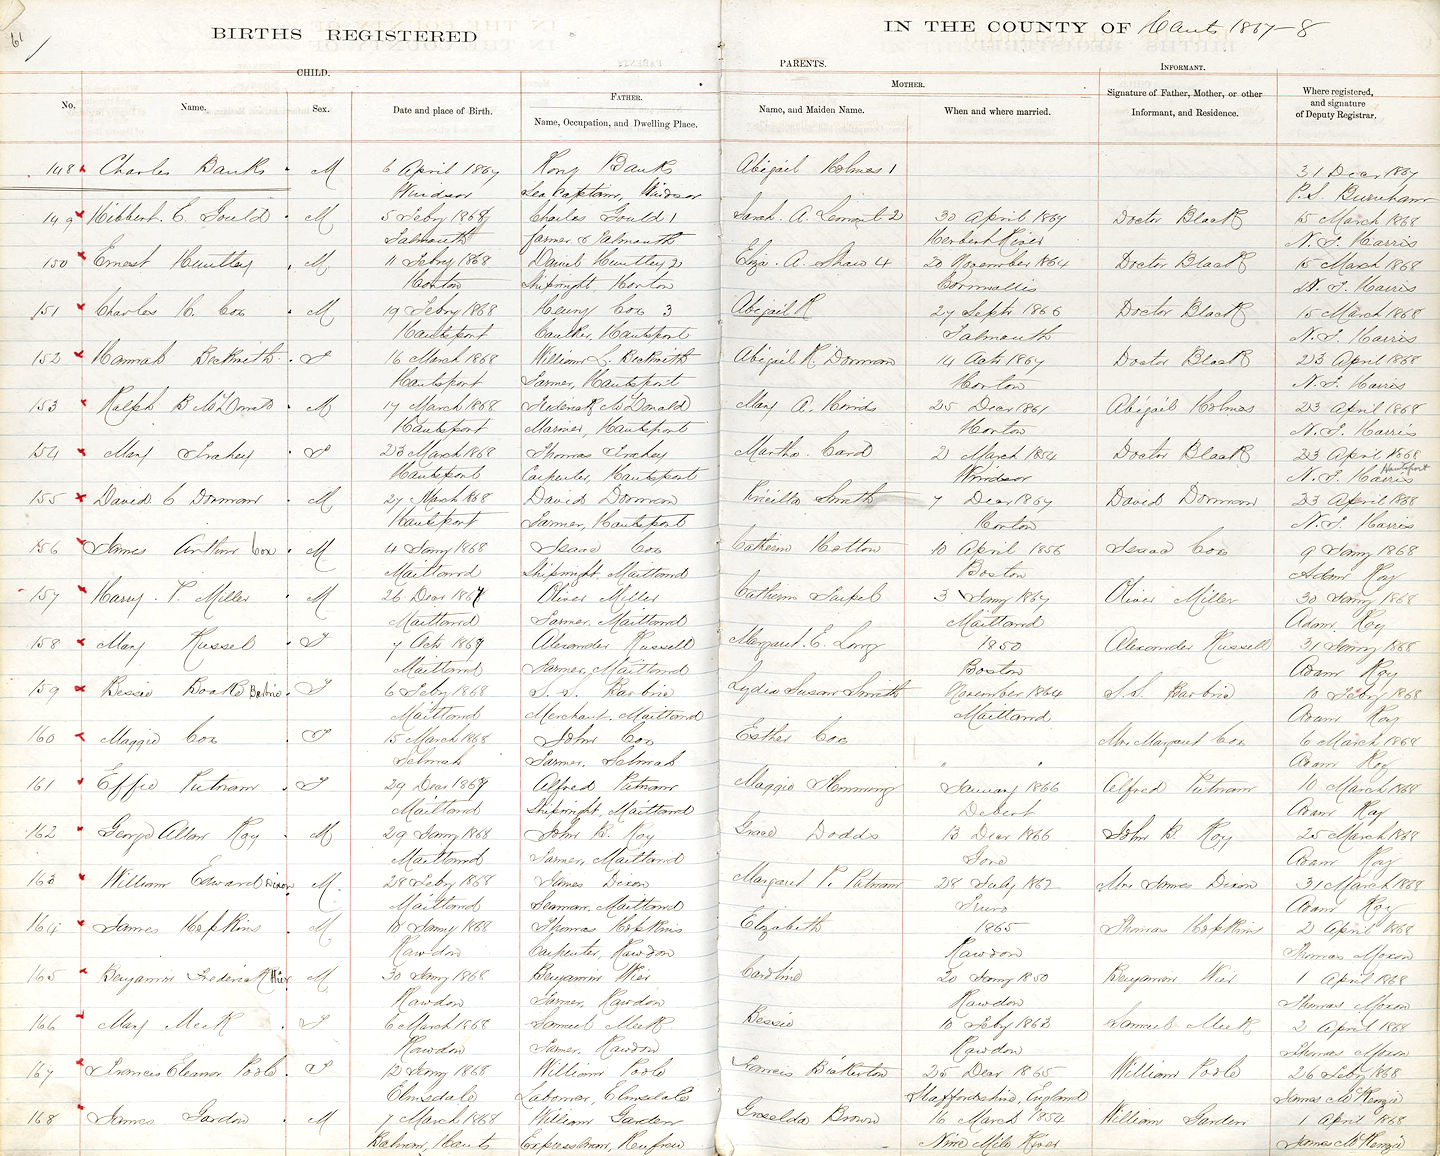 61
BIRTHS REGISTERED IN THE COUNTY OF Hants 1867-8
CHILD. PARENTS. INFORMANT.
FATHER. MOTHER.
No. Name. Sex. Date and place of Birth. Name, Occupation, and Dwelling Place. Name, and Maiden Name. When and where married. Signature of Father, Mother, or other Informant, and Residence. Where registered, and signature of Deputy Registrar.
148 Charles Banks M 6 April 1867 Banks Abigail Holmes 1 31 Decr 1867
Windsor Sea Captain, Windsor P.S. Burnham
149 Hibbert C. Gould M 5 Feby 1868 Charles Gould 1 Sarah A. 2 30 April 1867 Doctor Black 15 March 1868
Falmouth farmer Falmouth Herbert River N. T. Harris
150 Ernest Huntley M 11 Feby 1868 Daniel Huntley 2 Eliza. A. Shaw 4 20 November 1864 Doctor Black 15 March 1868
Horton Shipwright Horton Cornwallis N. T. Harris
151 Charles H. Cox M 19 Feby 1868 Henry Cox 3 Abigail R 27 Septr 1866 Doctor Black 15 March 1868
Hantsport Caulker, Hantsport Falmouth N. T. Harris
152 Hannah Beckwith F 16 March 1868 William L. Beckwith Abigail R. Dorman 4 Octr 1867 Doctor Black 23 April 1868
Hantsport Farmer, Hantsport Horton N. T. Harris
153 Ralph B McDonald M 17 March 1868 Frederick McDonald Mary A. Hinds 25 Decr 1861 Abigail Holmes 23 April 1868
Hantsport Mariner, Hantsport Horton N. T. Harris
154 Mary Trahey F 23 March 1868 Thomas Trahey Martha Card 21 March 1854 Doctor Black 23 April 1868
Hantsport Carpenter, Hantsport Windsor N. T. Harris Hantsport
155 David C Dorman M 27 March 1868 David Dorman Priscilla Smith 7 Decr 1867 David Dorman 23 April 1868
Hantsport Farmer, Hantsport Horton N. T. Harris
156 James Arthur Cox M 4 Jany 1868 Isaac Cox Catherine 10 April 1856 Isaac Cox 9 Jany 1868
Maitland Shipwright, Maitland Boston Adam Roy
157 Harry. P. Miller M 26 Decr 1867 Oliver Miller Catherine 3 Jany 1867 Oliver Miller 30 Jany 1868
Maitland Farmer, Maitland Maitland Adam Roy
158 Mary Russel F 7 Octr 1867 Alexander Russell Margaret. E. Long 1850 Alexander Russell 31 Jany 1868
Maitland Farmer, Maitland Boston Adam Roy
159 Bessie Barbrie F 6 Feby 1868 S. S. Barbrie Lydia Susan Smith November 1864 S. S. Barbrie 10 Feby 1868
Maitland Merchant, Maitland Maitland Adam Roy
160 Maggie Cox F 15 March 1868 John Cox Esther Cox Mrs Margaret Cox 6 March 1868
Selmah Farmer, Selmah " " Adam Roy
161 Effie Putnam F 29 Decr 1867 Alfred Putnam Maggie January 1866 Alfred Putnam 10 March 1868
Maitland Shipwright, Maitland Debert Adam Roy
162 George Allan Roy M 29 Jany 1868 John B. Roy Grace Dodds 13 Decr 1866 John B Roy 25 March 1868
Maitland Farmer, Maitland Gore Adam Roy
163 William Edward Dixon M. 28 Feby 1868 James Dixon Margaret P. Putnam 28 July 1862 Mrs James Dixon 31 March 1868
Maitland Seaman, Maitland Truro Adam Roy
164 James Hopkins M 10 Jany 1868 Thomas Hopkins Elizabeth 1865 Thomas Hopkins 2 April 1868
Rawdon Carpenter, Rawdon Rawdon Thomas Moxon
165 Benjamin Frederick Wier M 30 Jany 1868 Benjamin Wier Caroline 20 Jany 1850 Benjamin Wier 1 April 1868
Rawdon Farmer, Rawdon Rawdon Thomas Moxon
166 Mary Meek F 6 March 1868 Samuel Meek Bessie 10 Feby 1863 Samuel Meek 2 April 1868
Rawdon Farmer, Rawdon Rawdon Thomas Moxon
167 Francis Eleanor Poole F 12 Jany 1868 William Poole Francis Bickerton 25 Decr 1865 William Poole 26 Feby 1868
Elmsdale Laborer, Elmsdale Staffordshire, England James McKenzie
168 James Gardon M 7 March 1868 William Garden Griselda Brown 16 March 1854 William Garden 1 April 1868
Hants Expressman, Renfrew Nine Mile River James McKenzie